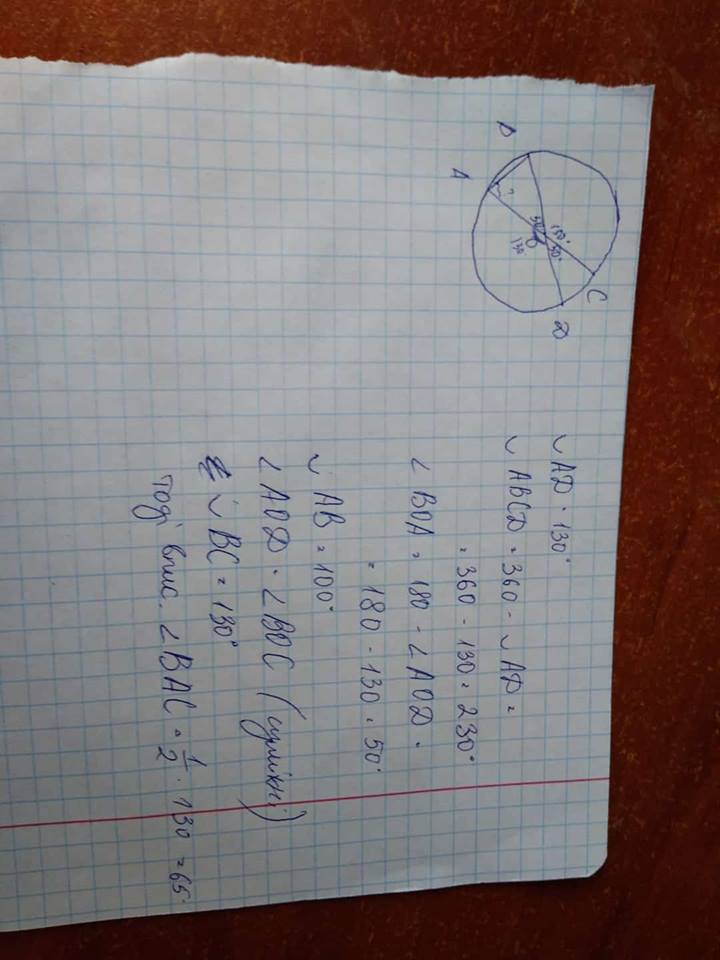 B
A
C
D
O
?
50°
130°
50°
130
∪ AD = 130°
∪ ABCD = 360 - ∪ AD =
= 360 - 130 = 230°
∠ BOA = 180 - ∠ AOD =
= 180 - 130 = 50°
∪ AB = 100°
∠ AOD = ∠ BOC (суміжні)
∪ BC = 130°
тоді впис. ∠ BAC = 1/2 · 130 = 65°